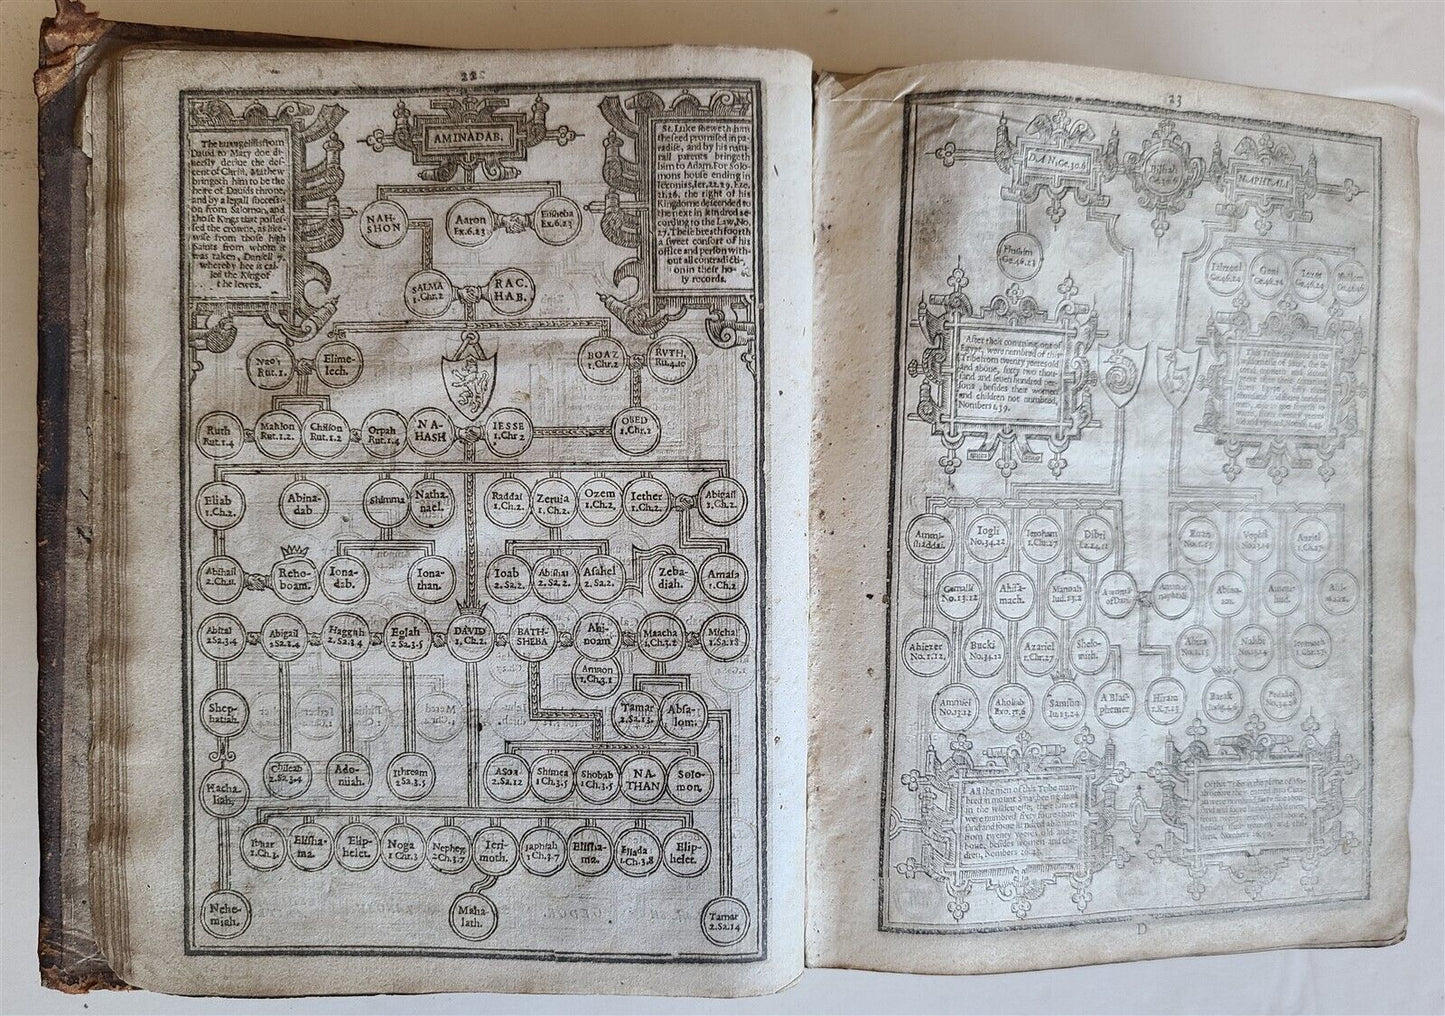 22
The Euangelists from
Dauid to Mary doe di-
uersly deriue the des-
cent of Christ. Mathew
bringeth him to be the
heire of Dauids throne,
and by a legall successi-
on from Salomon, and
those Kings that posses-
sed the crowne, as like-
wise from those high
saints from whom it
was taken, Daniell 7.
whereby hee is cal-
led the King of
the Iewes.
AMINADAB.
St. Luke sheweth him
the seed promised in pa-
radise, and by his natu-
rall parents bringeth
him to Adam. For Solo-
mons house ending in
Ieconias, Ier. 22. 29. Eze.
21. 26. the right of his
Kingdome descended to
the next in kindred ac-
cording to the Law, No.
27. These breath foorth
a sweet consort of his
office and person with-
out all contradicti-
on in their ho-
ly records.
NAH-
SHON
Aaron
Ex.6.23
Elisheba
Ex.6.23
SALMA
1.Chr.2
RAC.
HAB.
Naomi
Rut.1.
Elime-
lech.
BOAZ
1.Chr.2
RVTH,
Rut.4.10
Ruth
Rut.1.4
Mahlon
Rut.1.2.
Chilion
Rut.1.2
Orpah
Rut.1.4
NA-
HASH
IESSE
1.Chr.2
OBED
1.Chr.2
Eliab
1.Ch.2.
Abina-
dab
Shimma
Natha-
nael.
Raddai
1.Ch.2.
Zeruia
1.Ch.2.
Ozem
1.Ch.2.
Iether
1.Ch.2.
Abigail
1.Ch.2.
Abihail
2.Ch.11.
Reho-
boam.
Iona-
dab.
Iona-
than.
Ioab
2.Sa.2.
Abishai
2.Sa.2.
Asahel
2.Sa.2.
Zeba-
diah.
Amasa
1.Ch.2
Abital
2Sa.3.4
Abigail
2Sa.2.4
Haggith
2.Sa.3.4
Eglah
2.Sa.3.5
DAVID
1.Ch.2.
BATH-
SHEBA
Ahi-
noam
Maacha
1.Ch.3.2
Michal
1.Sa.18
Amnon
1.Ch.3.1
Shep-
hatiah.
Tamar
2.Sa.13.
Absa-
lom.
Chileab
2.Sa.3.4
Ado-
niiah.
Ithream
2Sa.3.5
2.Sa.12
Shimea
1Ch.3.5
Shobab
1Ch.3.5
NA-
THAN
Solo-
mon.
Hacha-
liah.
Ibhar
1.Ch.3.
Elisha-
ma.
Elip-
helet.
Noga
1Chr.3
Nepheg
2Ch.3.7
Ieri-
moth.
Iaphiah
1Ch.3.7
Elisha-
ma.
Eliada
1.Ch.3.8
Elip-
helet.
Nehe-
miah.
Maha-
lath.
Tamar
2.Sa.14
23
DAN, Ge.30.6
Bilhah
Ge.30.6
NAPHTALI
Hushim
Ge.46.23
Iahzeel
Ge.46.24
Guni
Ge.46.24
Iezer
Ge.46.24
Shillem
Ge.46.24
After their comming out of
Egypt, were numbred of this
Tribe from twenty yeeres old
and aboue, sixty two thou-
sand and seuen hundred per-
sons, besides their women
and children not numbred,
Nombers 1.39.
Ammi-
shaddai.
Iogli
No.34.22
Ieroham
1.Chr.27
Dibri
Le.24.11
Enan
No.1.15
Vophsi
No.13.14
Azriel
1.Ch.27
Gemalli
No.13.12
Ahisa-
mach.
Manoah
Iud.13.2
A woman
of Dan.
Abino-
am.
Ahiezer
No.1.12,
Bucki
No.34.22
Azariel
1.Chr.27
Shelo-
mith.
Ahira
No.1.15
Nahbi
No.13.14
Ieremoth
1.Ch.27
Ammiel
No.13.12
Aholiab
Exo.31.6
Samson
Iu.13.24
A Blas-
phemer
Hiram
1.K.7.13
Barak
Iudg.4.6
Pedahel
No.34.28
All the men of this Tribe num-
bred in mount Sinai, being dead
in the wildernesse, their issues
were numbred sixty foure thou-
sand and foure hundred aboue
from twenty yeeres old and a-
boue, besides women and chil-
dren, Nombers 26.43.
D